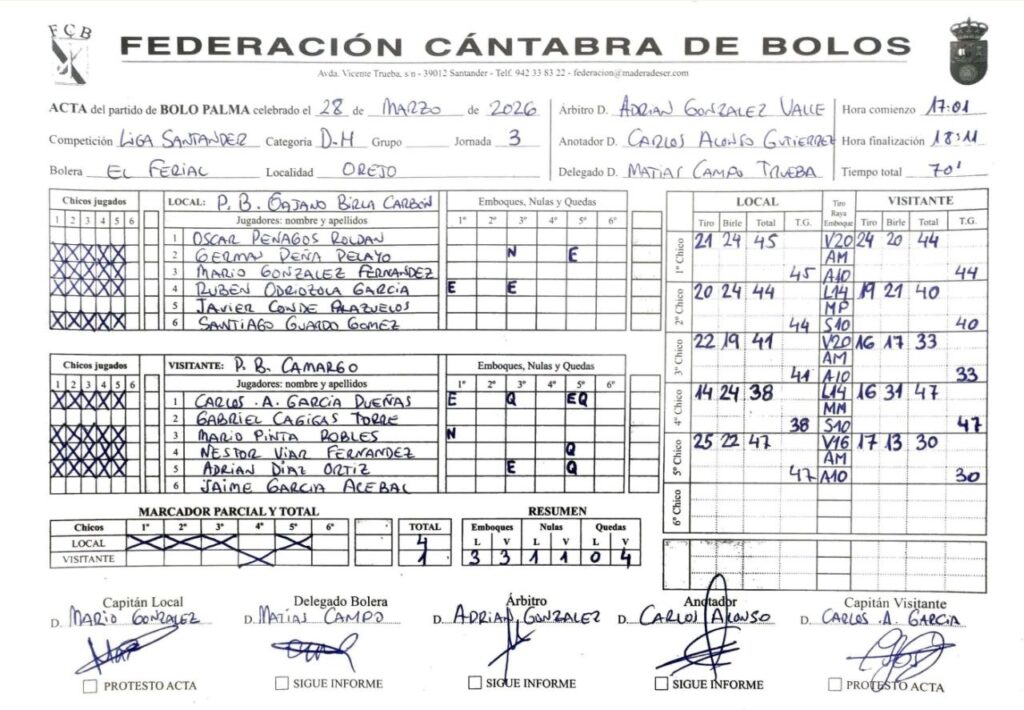 FCB
FEDERACIÓN CÁNTABRA DE BOLOS
Avda. Vicente Trueba, s/n - 39012 Santander - Telf. 942 33 83 22 - federacion@maderadeser.com
ACTA del partido de BOLO PALMA celebrado el 28 de MARZO de 2026
Competición LIGA SANTANDER Categoría D.H Grupo Jornada 3
Bolera EL FERIAL Localidad OREJO
Árbitro D. ADRIAN GONZALEZ VALLE
Anotador D. CARLOS ALONSO GUTIERREZ
Delegado D. MATIAS CAMPO TRUEBA
Hora comienzo 17:01
Hora finalización 18:11
Tiempo total 70'
Chicos jugados LOCAL: P. B. GAJANO BIRLA CARBON Emboques, Nulas y Quedas
1 2 3 4 5 6 Jugadores: nombre y apellidos 1º 2º 3º 4º 5º 6º
1 OSCAR PENAGOS ROLDAN
X X X X X 2 GERMAN PEÑA PELAYO N E
X X X X X 3 MARIO GONZALEZ FERNANDEZ
X X X X X 4 RUBEN ODRIOZOLA GARCIA E E
5 JAVIER CONDE PALAZUELOS
X X X X X 6 SANTIAGO GUARDO GOMEZ
Chicos jugados VISITANTE: P. B. CAMARGO Emboques, Nulas y Quedas
1 2 3 4 5 6 Jugadores: nombre y apellidos 1º 2º 3º 4º 5º 6º
X X X X X 1 CARLOS .A. GARCIA DUEÑAS E Q EQ
2 GABRIEL CAGIGAS TORRE
X X X X X 3 MARIO PINTA ROBLES N
X X X X X 4 NESTOR VIAR FERNANDEZ Q
X X X X X 5 ADRIAN DIAZ ORTIZ E Q
6 JAIME GARCIA ACEBAL
LOCAL Tiro Raya Emboque VISITANTE
Tiro Birle Total T.G. Tiro Birle Total T.G.
1º Chico 21 24 45 V20 24 20 44
AM
45 A10 44
2º Chico 20 24 44 L14 19 21 40
MP
44 S10 40
3º Chico 22 19 41 V20 16 17 33
AM
41 A10 33
4º Chico 14 24 38 L14 16 31 47
MM
38 S10 47
5º Chico 25 22 47 V16 17 13 30
AM
47 A10 30
6º Chico
MARCADOR PARCIAL Y TOTAL
Chicos 1º 2º 3º 4º 5º 6º TOTAL
LOCAL X X X X 4
VISITANTE X 1
RESUMEN
Emboques Nulas Quedas
L V L V L V
3 3 1 1 0 4
Capitán Local
D. MARIO GONZALEZ
PROTESTO ACTA
Delegado Bolera
D. MATIAS CAMPO
SIGUE INFORME
Árbitro
D. ADRIAN GONZALEZ
SIGUE INFORME
Anotador
D. CARLOS ALONSO
SIGUE INFORME
Capitán Visitante
D. CARLOS .A. GARCIA
PROTESTO ACTA